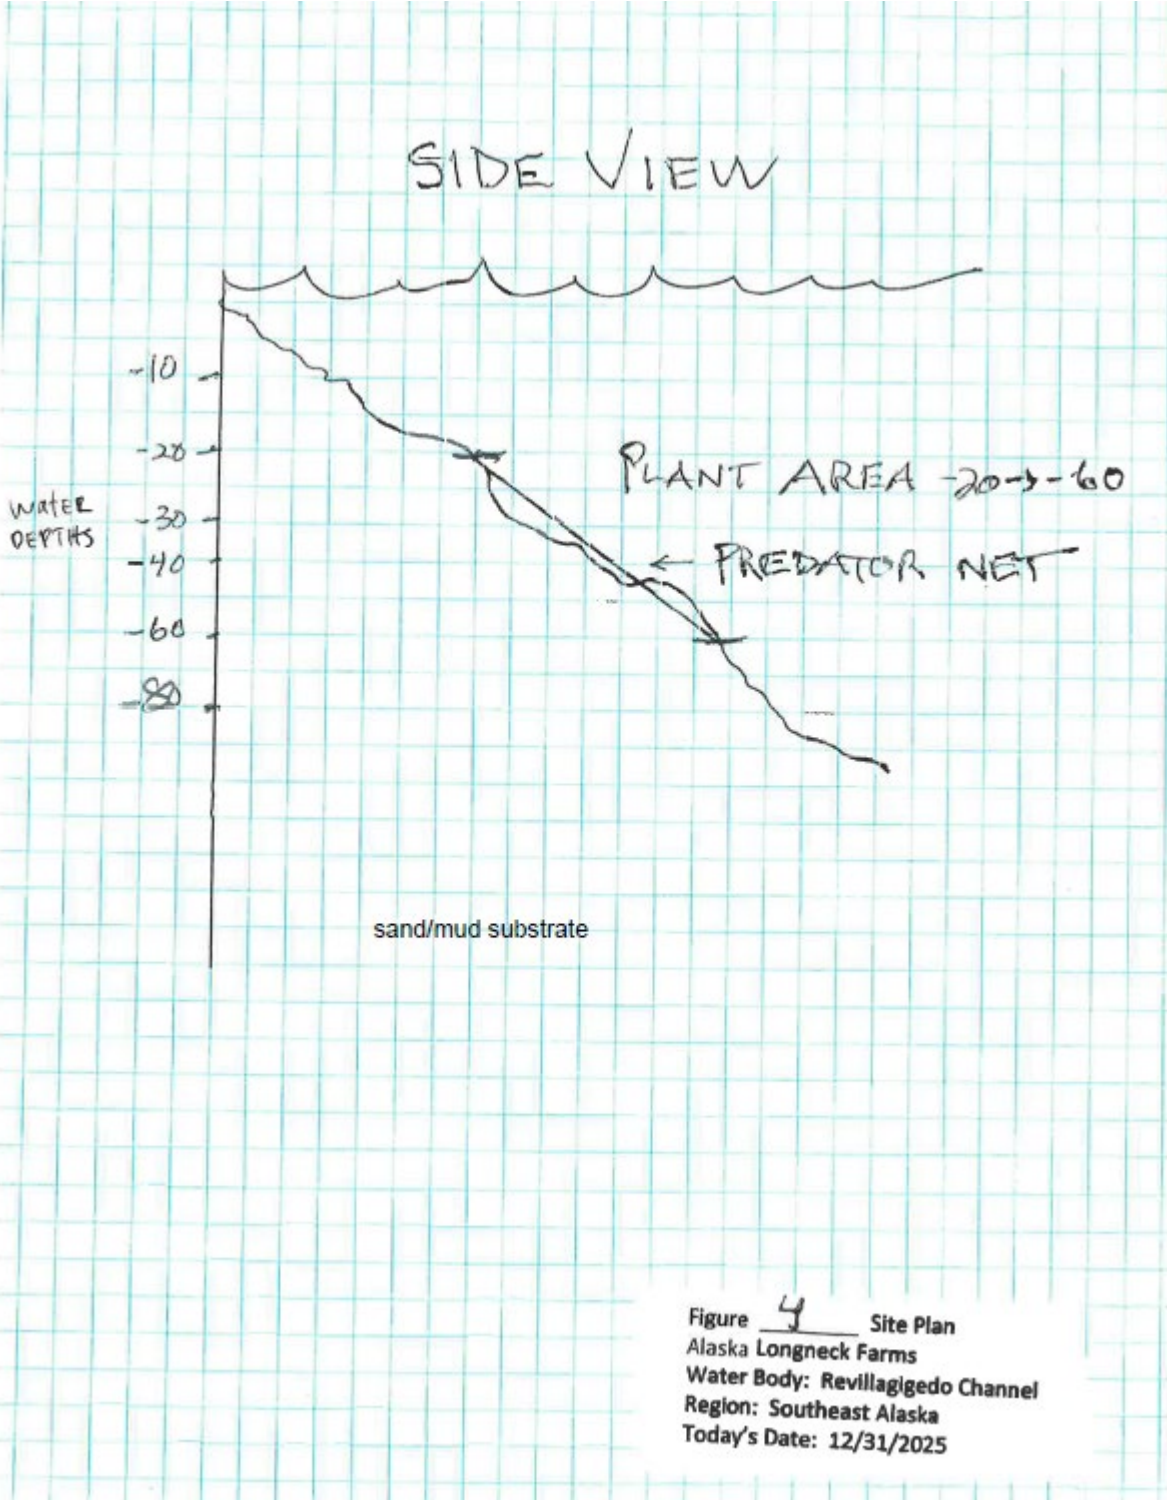 SIDE VIEW
-10
-20
PLANT AREA -20→-60
WATER
DEPTHS
-30
-40
← PREDATOR NET
-60
-80
sand/mud substrate
Figure 4 Site Plan
Alaska Longneck Farms
Water Body: Revillagigedo Channel
Region: Southeast Alaska
Today's Date: 12/31/2025